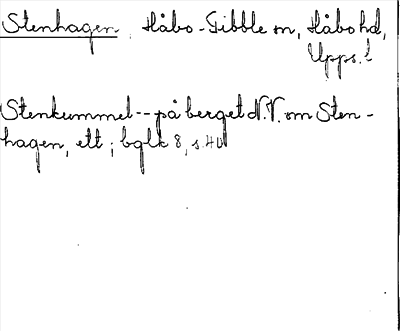 Stenhagen. Håbo-Tibble sn, Håbo hd,
Upps. l
Stenkummel -- på berget N.V. om Sten-
hagen, ett; bglk 8, s. 40